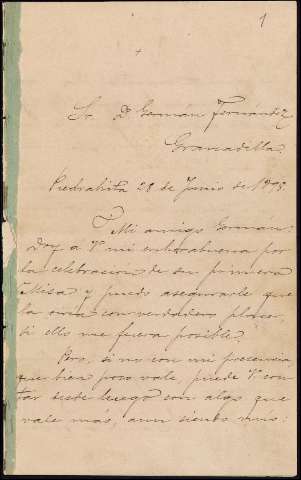 1
Sr. D. Germán Fernández
Granadilla.
Piedrahita 28 de Junio de 1899.
Mi amigo Germán:
Doy á V. mi enhorabuena por
la celebracion de su primera
Misa y puedo asegurarle que
la oiria con verdadero placer,
si ello me fuera posible.
Pero, si no con mi presencia,
que bien poco vale, puede V. con-
tar desde luego con algo que
vale más, aun siendo mio: